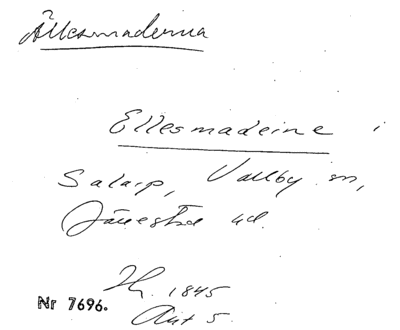 Ällesmaderna
Ellesmadeine i
Salarp, Vallby sn,
Järrestad hd.
H. 1845
Nr 7696.
Akt 5.